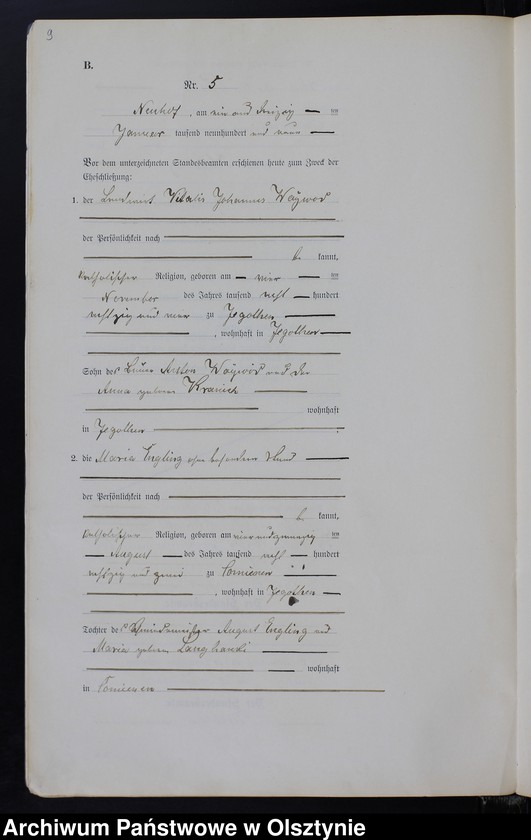 9
B.
Nr. 5
Neuhof, am ein und dreißig ten
Januar tausend neunhundert und neun
Vor dem unterzeichneten Standesbeamten erschienen heute zum Zweck der
Eheschließung:
1. der Landwirt Vitalis Johannes Waÿwod
der Persönlichkeit nach
be kannt,
katholischer Religion, geboren am vier ten
November des Jahres tausend acht hundert
achtzig und vier zu Jegothen
, wohnhaft in Jegothen
Sohn des Anton Waÿwod und der
Anna geborene Kranich
wohnhaft
in Jegothen
2. die Maria Engling ohne besonderen Stand
der Persönlichkeit nach
be kannt,
katholischer Religion, geboren am vierundzwanzig ten
August des Jahres tausend acht hundert
achtzig und zwei zu
, wohnhaft in Jegothen
Tochter des Schmiedemeister August Engling und
Maria geborene Langhanki
wohnhaft
in
Archiwum Państwowe w Olsztynie